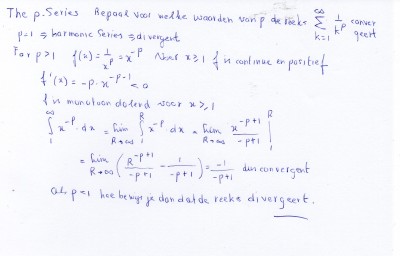 The p. Series Bepaal voor welke waarden van p de reeks ∑_{k=1}^{∞} 1/k^p conver
geert
p=1 ⇒ harmonic Series ⇒ divergent.
For p>1 f(x) = 1/x^p = x^{-p} Voor x≥1 f is continue en positief
f'(x) = -p·x^{-p-1} < 0
f is monotoon dalend voor x≥1
∫_1^∞ x^{-p}·dx = lim_{R→∞} ∫_1^R x^{-p} dx = lim_{R→∞} x^{-p+1}/(-p+1) |_1^R
= lim_{R→∞} (R^{-p+1}/(-p+1) - 1/(-p+1)) = -1/(-p+1) dus convergent
Als p<1 hoe bewijs je dan dat de reeks divergeert.